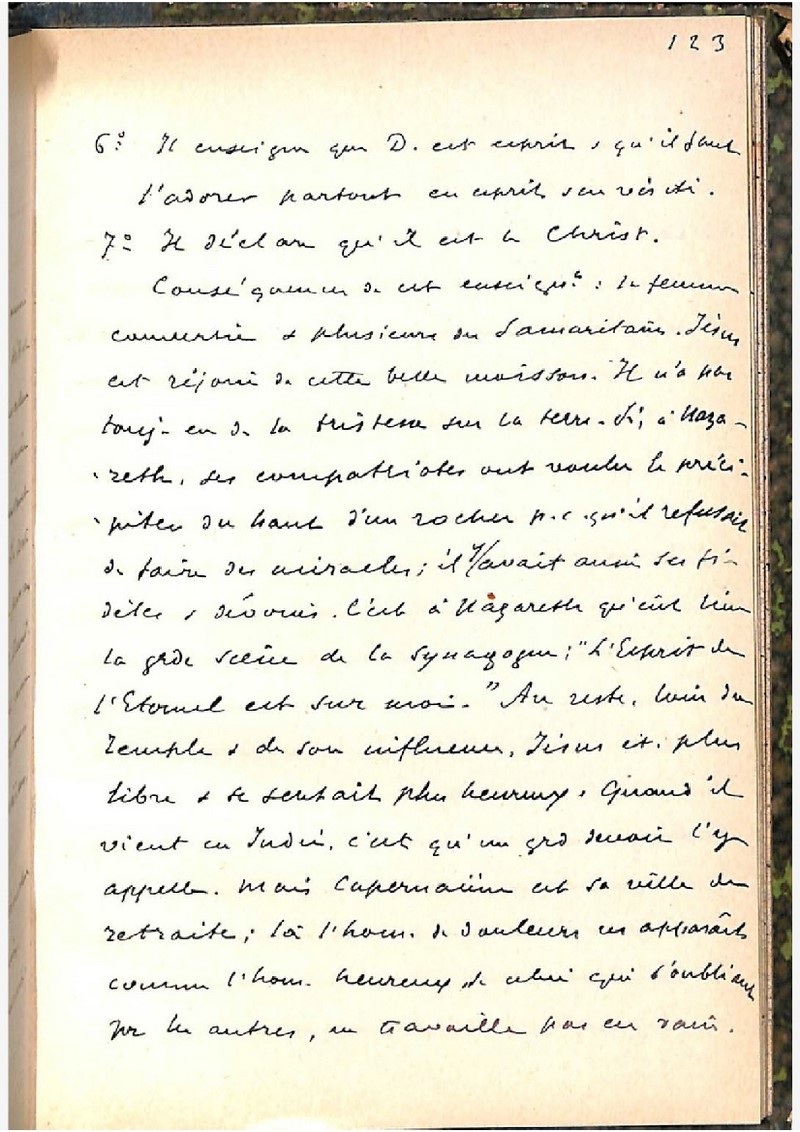 123
6° Il enseigne que D. est esprit & qu'il faut
l'adorer partout en esprit & en vérité.
7° Il déclare qu'il est le Christ.
Conséquences de cet enseignt : la femme
convertie & plusieurs des Samaritains. Jésus
est réjoui de cette belle moisson. Il n'a pas
touj. eu de la tristesse sur la terre. Si, à Naza-
reth, ses compatriotes ont voulu le préci-
piter du haut d'un rocher p.c.qu'il refusait
de faire des miracles; il y avait aussi ses fi-
dèles & dévoués. C'est à Nazareth qu'eût lieu
la grde scène de la synagogue; "L'Esprit de
l'Eternel est sur moi." Au reste, loin du
Temple & de son influence, Jésus ét. plus
libre & se sentait plus heureux. Quand il
vient en Judée, c'est qu'un grd devoir l'y
appelle. Mais Capernaüm est sa ville de
retraite; là l'hom. de douleurs ns apparaît
comme l'hom. heureux, de celui qui s'oubliant
pr les autres, ne travaille pas en vain.